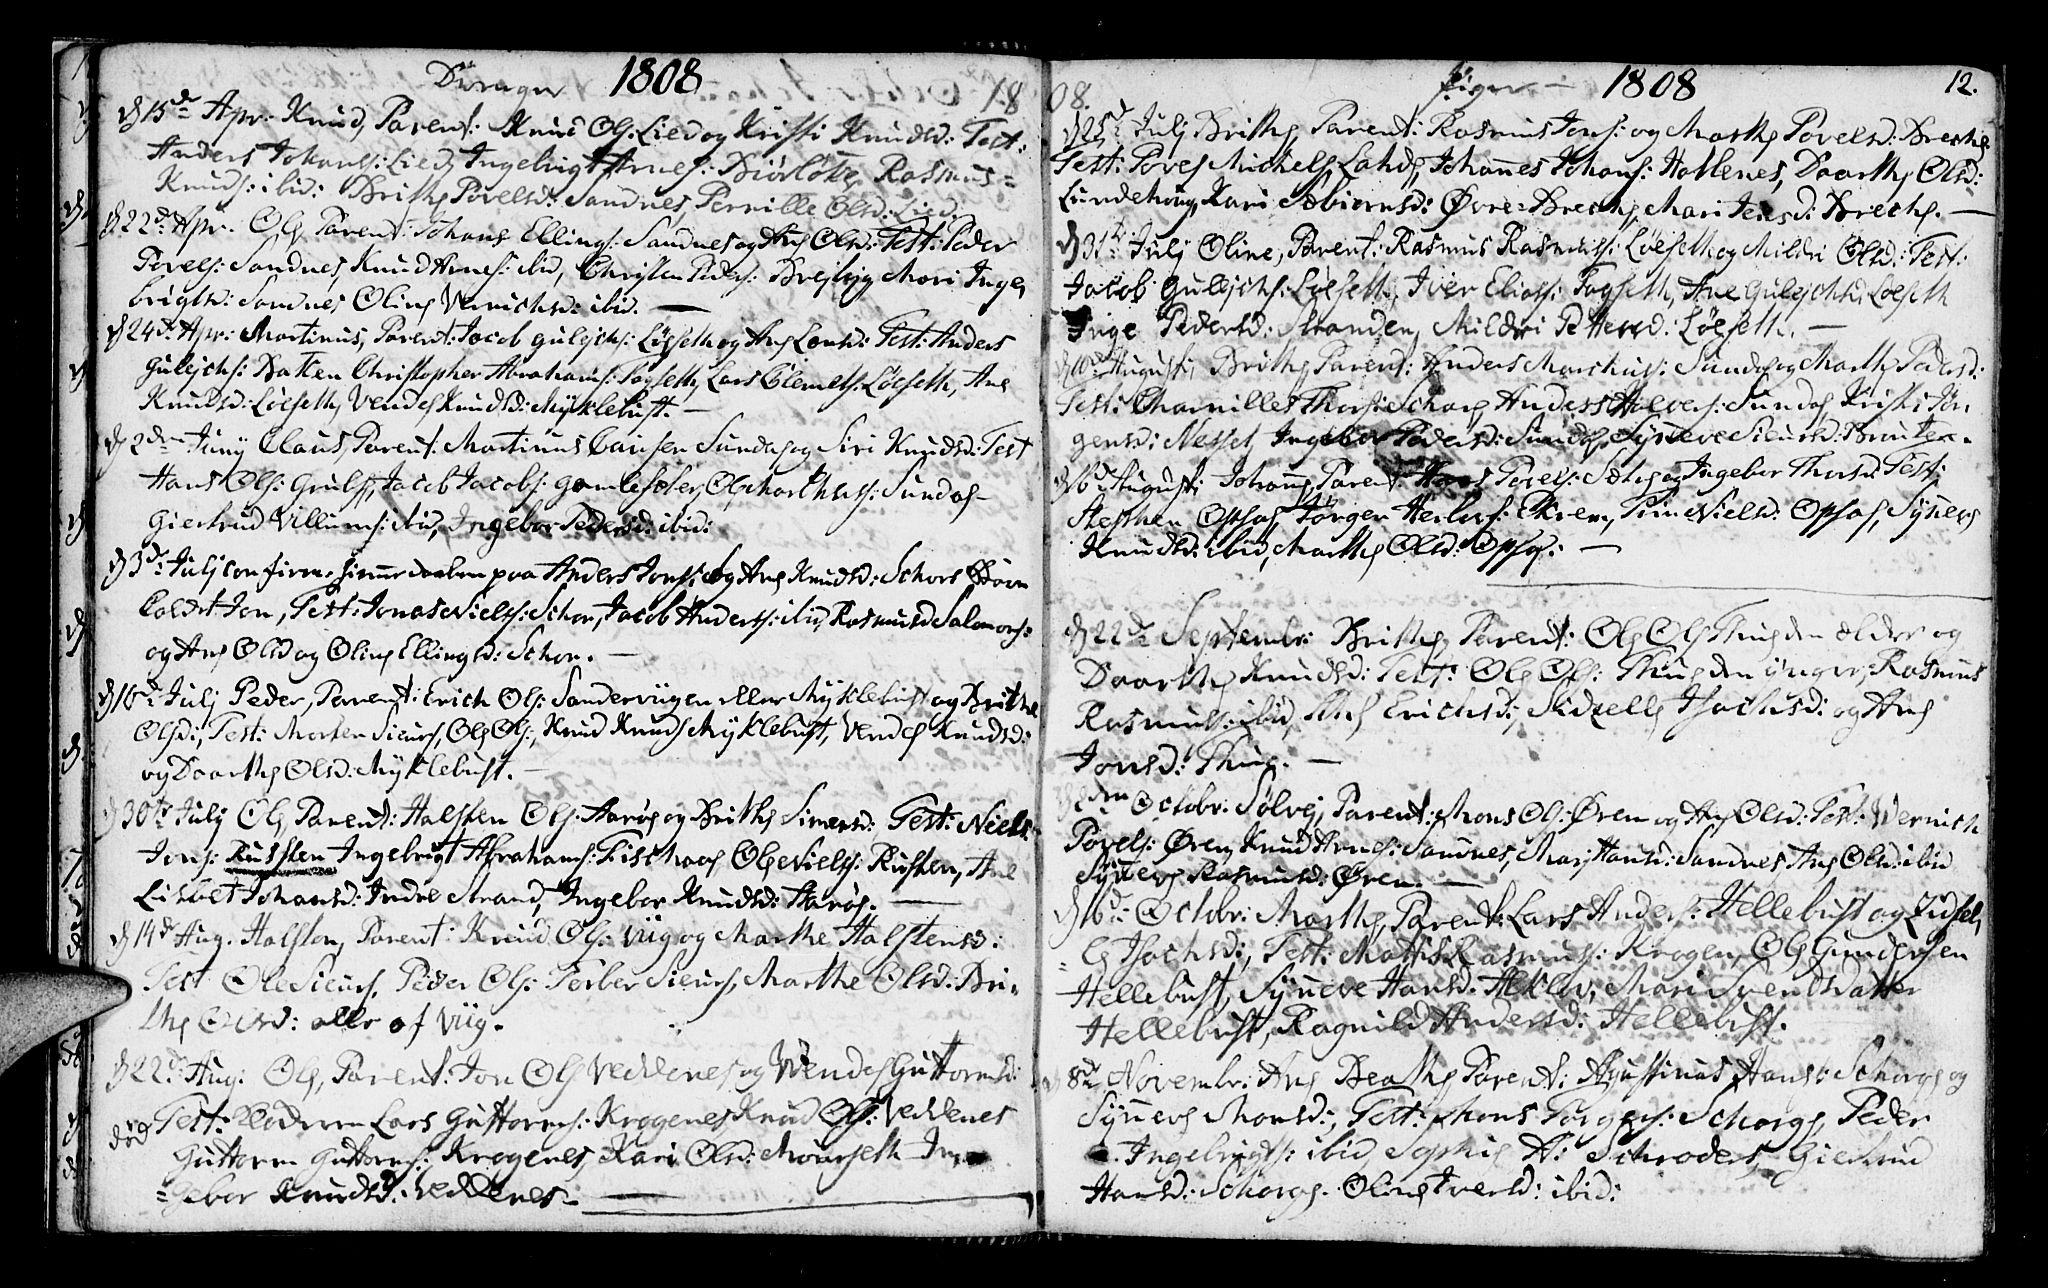 Drenger 1808
d 15de Apr: Knud, Parent: Knud Ols: Lied og Kristi Knudsd: Test:
Anders Johans: Lied, Ingebrigt Arnes: Biørløke, Rasmus
Knuds: ibid: Brithe Povelsd: Sandnes, Pernille Olsd: Lied.
d 22de Apr: Ole, Parent: Johans Ellings: Sandnes og Ane Olsd: Test: Peder
Povels: Sandnes, Knud Arnes: ibid, Christen Peders: Brejvig Mari Inge
brigtsd: Sandnes Oline Wernichsd: ibid. —
d 24de Apr: Martinus, Parent: Jacob Gulichs: Løeseth og Ane Larsd: Test: Anders
Gulichs: Batten Christopher Abrahams: Fagseth, Lars Clemets: Løeseth, Ane
Knudsd: Løeseth, Vendel Knudsd: Myklebust. —
d 2den Juny Claus, Parent: Martinus Clausen Sundas og Siri Knudsd: Test
Hans Ols: Grubs, Jacob Jacobs: Gamlesæter, Ole Marthus: Sundas
Giertrud Villums: ibid, Ingebor Pedersd: ibid:
d 3de July confirm: hiemmedaaben paa Anders Jons: og Ane Knudsd: Schors Barn
kaldt Jon, Test: Jonas Niels: Schor, Jacob Anders: ibid, Rasmus Salomons:
og Ane Olsd og Oline Ellingsd: Schor. —
d 10de July Peder, Parent: Erich Ols: Sandervigen eller Myklebust og Brithe
Olsd:, Test: Morten Siurs, Ole Ols:, Knud Knuds Myklebust, Vendel Knudsd:
og Daarthe Olsd: Myklebust. —
d 30te July Ole, Parent: Halsten Ols: Harøe og Brithe Siversd: Test: Niels
Jons: Russten Ingebrigt Abrahams: Fischaas Ole Niels: Rusten, Ane
Lisbet Johansd: Indre Strand, Ingebor Knudsd: Harøe. —
d 14de Aug. Halsten, Parent: Knud Ols: Viig og Marthe Halstensd:
Test Ole Siurs, Peder Ols: Torber Siurs, Marthe Olsd: Bri-
the Olsd: alle af Viig.
d 22de Aug: Ole, Parent: Jon Ols Veddenes og Wendel Guttormsd:
død Test: Lars Guttorms: Krogenes Knud Ols: Veddenes
Guttorm Guttorms: Krogenes, Kari Olsd: Mourseth In
=gebor Knudsd: Veddenes —
Piger — 1808 12.
d 25de July Brithe Parent: Rasmus Jons: og Marthe Povelsd: Breche
Test: Povel Michels, Johannes Johans: Hatlenes, Daarthe Olsd:
Lundehoug, Kari Sæbiørnsd: Øvre-Breche, Mari Jensd: Breche. —
d 31te July Oline, Parent: Rasmus Rasmus: Løeseth og Mildri Olsd: Test:
Jacob Gulichs: Løeseth, Iver Elias: Fagseth, Ane Gulichsd: Løeseth
Inge Pedersd: Stranden, Mildri Pettersd: Løeseth. —
August: Brithe Parent: Anders Marchus: Sundas og Marthe Pedersd:
Test: Thors: Schare Anders Halvors: Sundas, Kristi Jør
gensd: Nesset Ingebor Pedersd: Sundas, Synneve Siursd: Brauten.
d 16de Augusti Johanne, Parent Hans Povels: og Ingebor Thorsd: Test:
Steffen Opsas, Jørgen Ekrem, Nielsd: Opsas, Synneve
Knudsd: ibid, Marthe Olsd: Opsas: —
d 22de Septembr: Brithe, Parent: Ole Ols Thue den ældre og
Daarthe Knudsd: Test: Ole Ols: Thue den ynger, Rasmus
Rasmus: ibid, Ane Erichsd:, Sidzelle Isachsd: og Ane
Jonsd: Thue. —
Octobr: Sølvej, Parent: Mons Ols: Ørem og Ane Olsd: Test: Wernich
Povels: Ørem, Knud Arnes: Sandnes, Mari Hansd: Sandnes Ane Olsd: ibid
Synneve Rasmusd: Ørem. —
d 16de Octobr: Marthe, Parent: Lars Anders: Hellebust og Zidsel,
=le Isachsd:, Test: Mathis Rasmus: Krogen, Ole Gundersen
Hellebust, Synneve Hansd: Mari Svendsdatter
Hellebust, Ragnild Andersd: Hellebust.
8de Novembr: Ane Beathe Parent: Agustinus Hans: Schorge og
Synneve Monsd:, Test: Mons Torgers: Schorge, Peder
Ingebrigts: ibid, Sophie A: Schroder, Giertrud
Hansd: Schorge. Oline Iversd: ibid: